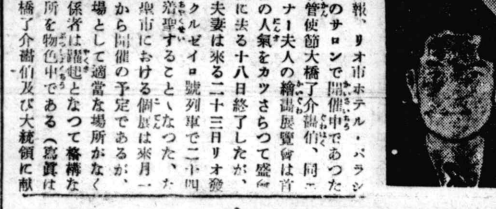 報、リオ市ホテル・パラシ
のサロンで開催中であつた
管使節大橋了介畵伯、同
ナー夫人の繪畵展覽會は首
の人氣をカツさらつて盛
に去る十八日終了したが、
夫妻は來る二十三日リオ發
クルゼイロ號列車で二十四
着聖することゝなつた、た
聖市における個展は來月一
から開催の予定であるが、
場として適當な場所がなく
係者は躍起となつて格構な
所を物色中である(寫眞は
橋了介畵伯及び大統領に献